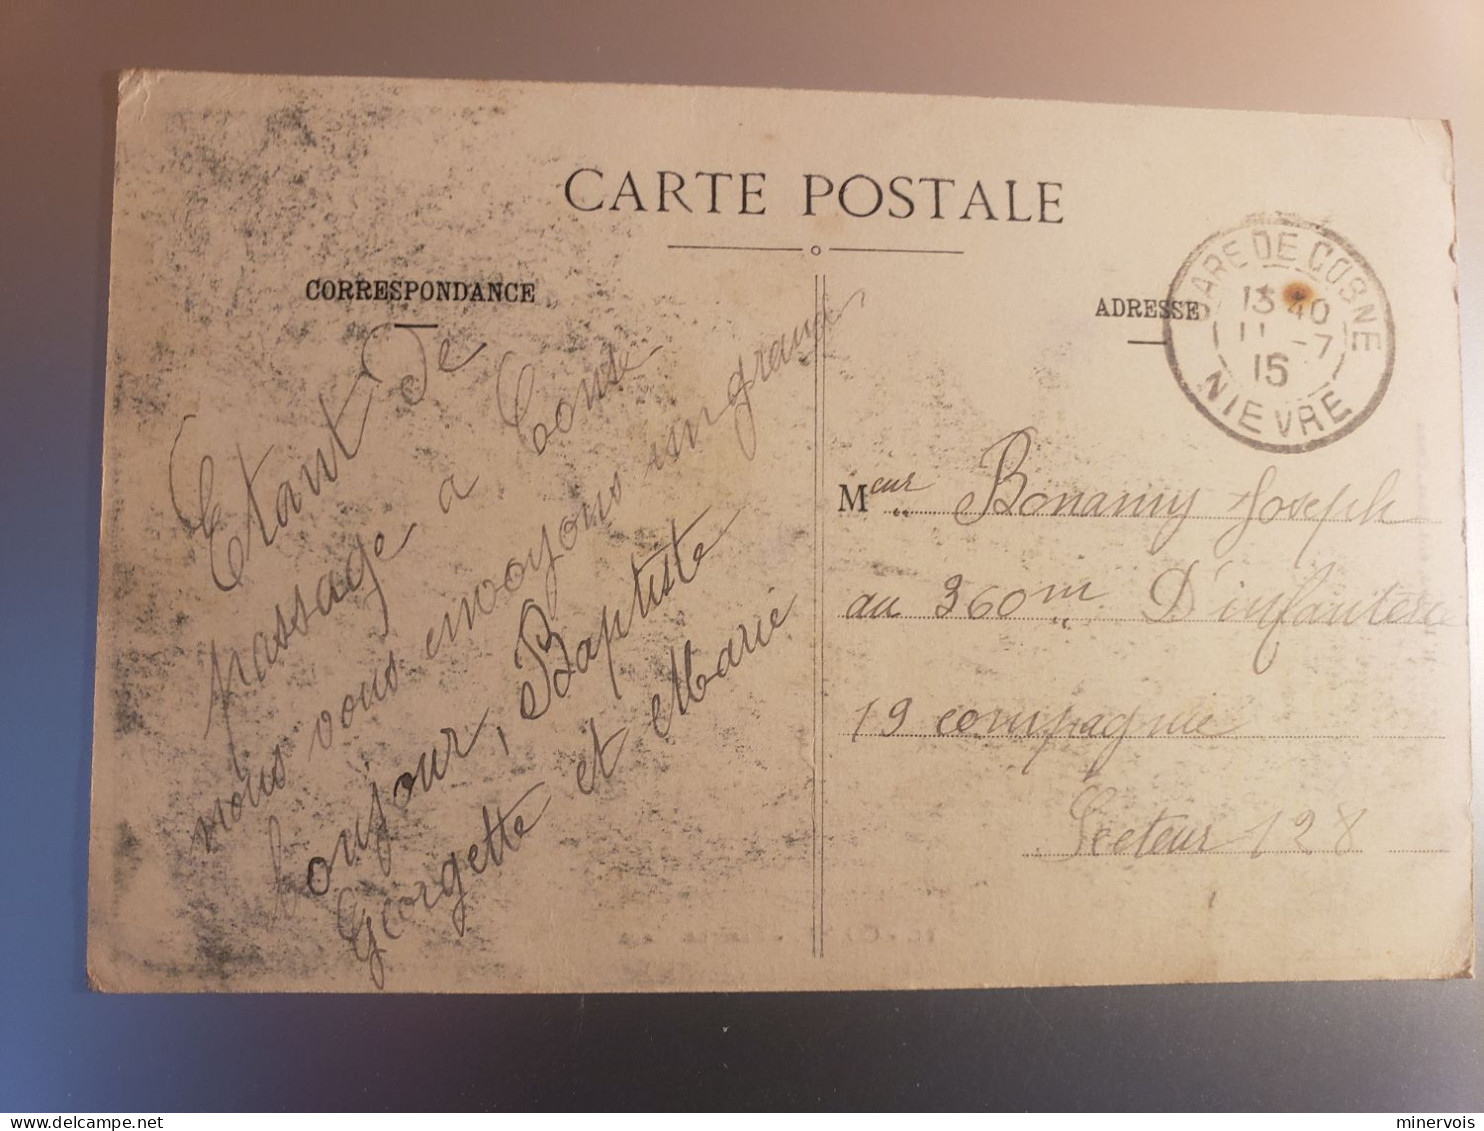 CARTE POSTALE
CORRESPONDANCE
Etant de
passage a Conse
nous vous envoyons un grand
bonjour, Baptiste
Georgette et Marie
ADRESSE
GARE DE COSNE
13 40
11 -7
15
NIEVRE
Meur Bonamy Joseph
au 360m D'infanterie
19 compagnie
Secteur 128
delcampe.net
minervois